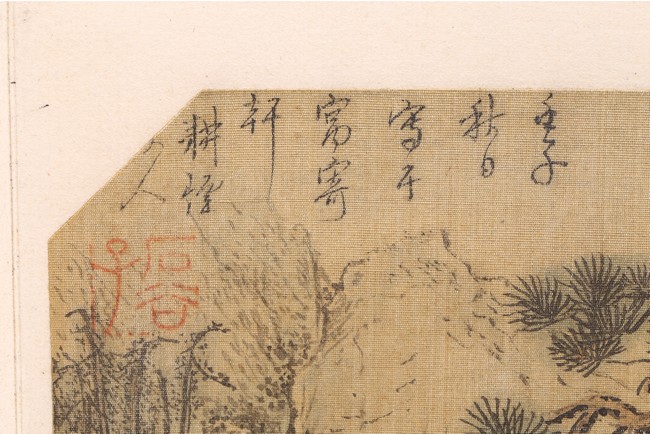 壬子
秋日
寫于
寓寄
軒
耕煙
人
石谷
子